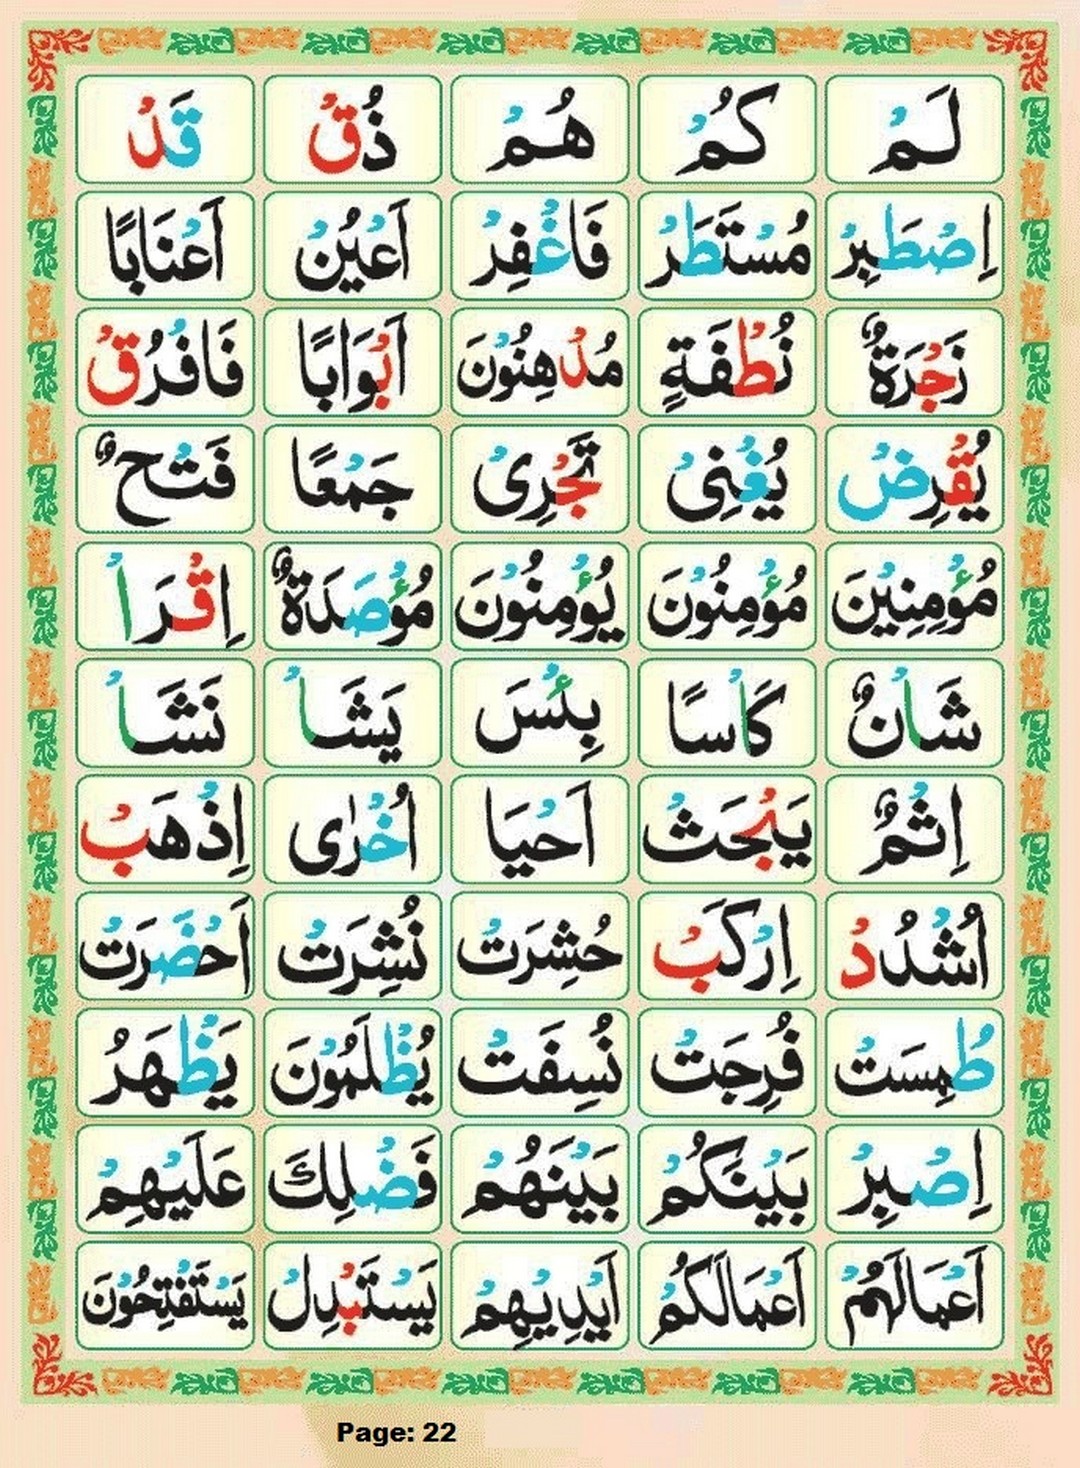 لَمْ كُمْ هُمْ ذُقْ قَدْ
اِصْطَبِرْ مُسْتَطَرْ فَاغْفِرْ اَعْيُنْ اَعْنَابًا
زَجْرَةٌ نُطْفَةٍ مُدْهِنُوْنَ اَبْوَابًا فَافْرُقْ
يُقْرِضْ يُغْنِىْ تَجْرِىْ جَمْعًا فَتْحٌ
مُؤْمِنِيْنَ مُؤْمِنُوْنَ يُوْمِنُوْنَ مُؤْصَدَةٌ اِقْرَاْ
شَاْنٌ كَاْسًا بِئْسَ يَشَاْ نَشَاْ
اِثْمٌ يَبْحَثْ اَحْيَا اُخْرٰى اِذْهَبْ
اُشْدُدْ اِرْكَبْ حُشِرَتْ نُشِرَتْ اَحْضَرَتْ
طُمِسَتْ فُرِجَتْ نُسِفَتْ يُظْلَمُوْنَ يَظْهَرُ
اِصْبِرْ بَيْنَكُمْ بَيْنَهُمْ فَضْلِكَ عَلَيْهِمْ
اَعْمَالَهُمْ اَعْمَالَكُمْ اَيْدِيْهِمْ يَسْتَبْدِلْ يَسْتَفْتِحُوْنَ
Page: 22